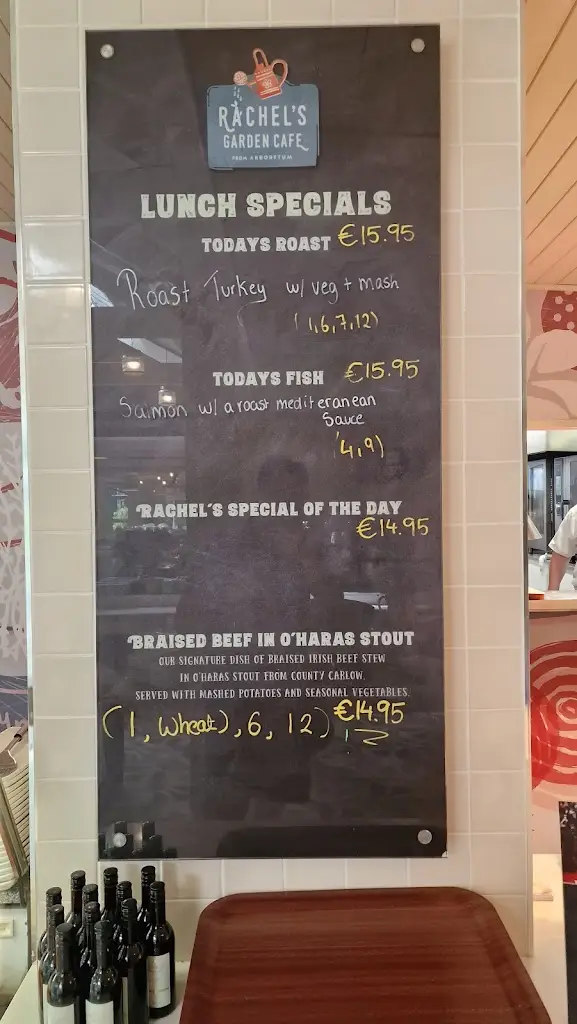 RACHEL'S
GARDEN CAFE
FROM ARBORETUM
LUNCH SPECIALS
TODAYS ROAST €15.95
Roast Turkey w/ veg + mash
(1,6,7,12)
TODAYS FISH €15.95
Salmon w/ a roast mediteranean
Sauce
(4,9)
RACHEL'S SPECIAL OF THE DAY
€14.95
BRAISED BEEF IN O'HARAS STOUT
OUR SIGNATURE DISH OF BRAISED IRISH BEEF STEW
IN O'HARAS STOUT FROM COUNTY CARLOW.
SERVED WITH MASHED POTATOES AND SEASONAL VEGETABLES.
(1, Wheat), 6, 12) €14.95